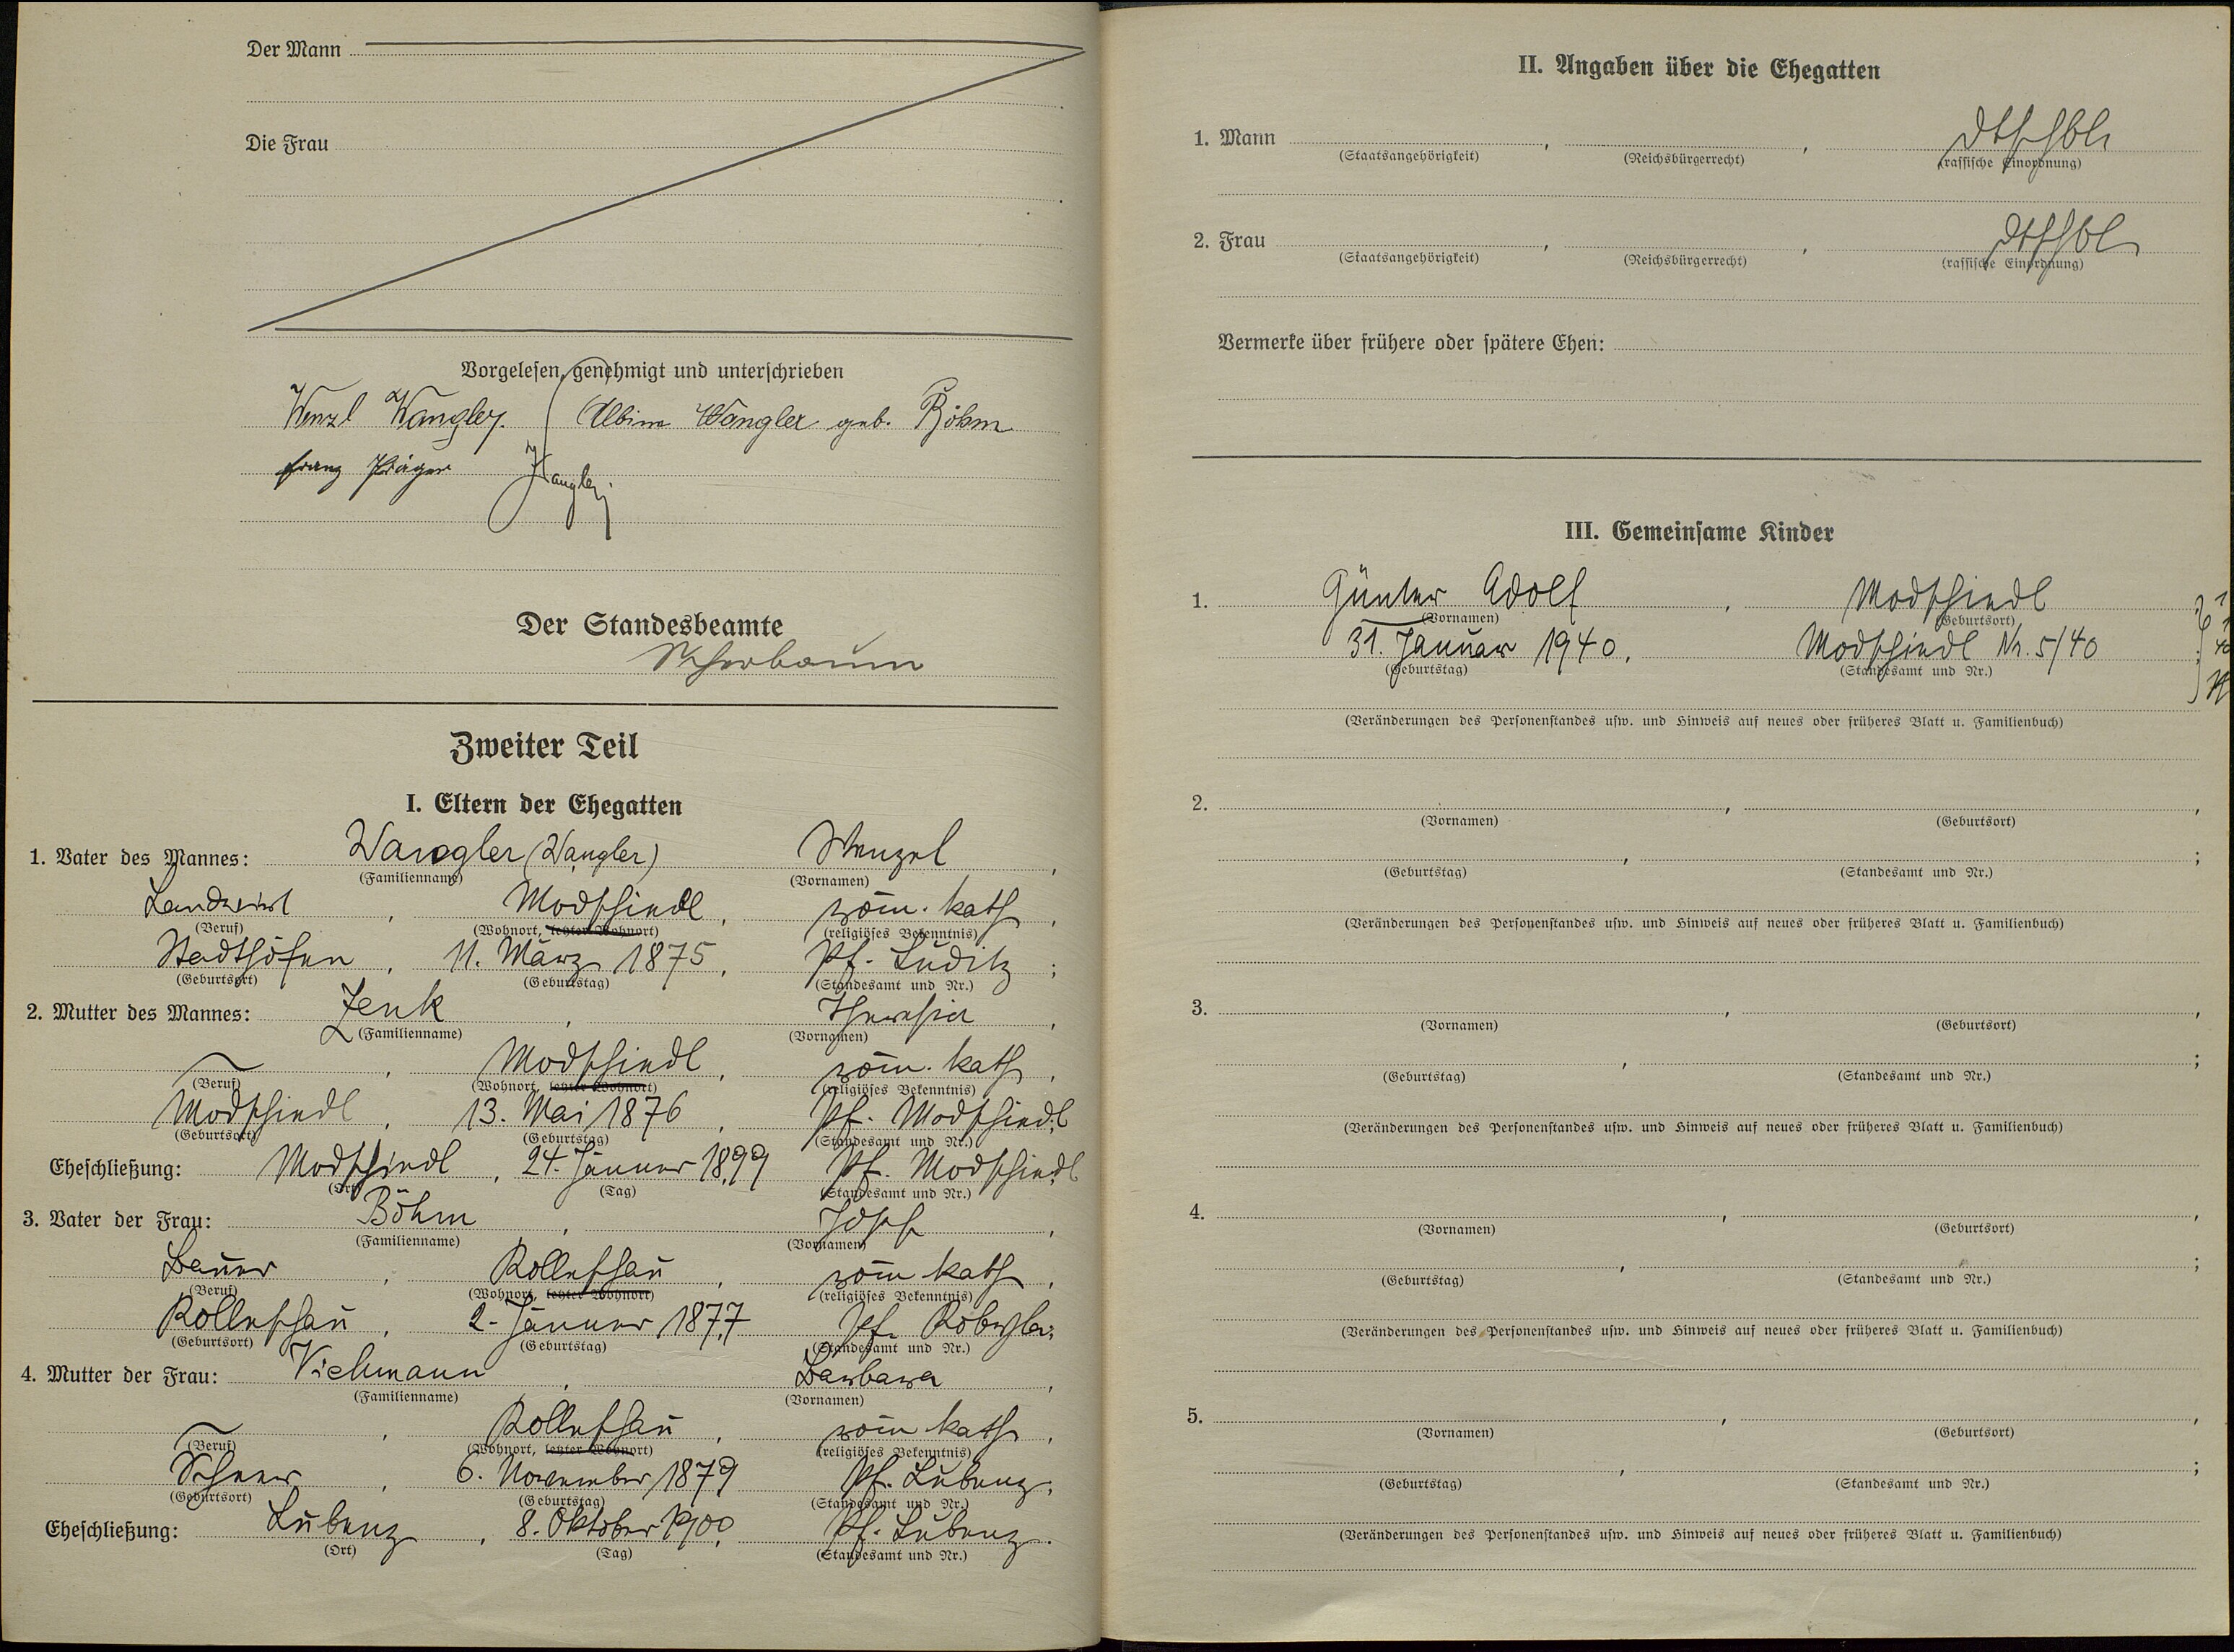 Der Mann
Die Frau
Vorgelesen, genehmigt und unterschrieben
Wenzl Wangler. Albine Wangler geb. Böhm
Franz Wangler
Der Standesbeamte
Scherbaum
Zweiter Teil
I. Eltern der Ehegatten
1. Vater des Mannes: Wangler (Wangler) Wenzel,
(Familienname) (Vornamen)
Landwirt, Modschiedl, röm. kath,
(Beruf) (Wohnort, letzter Wohnort) (religiöses Bekenntnis)
Stadthöfen, 11. März 1875, Pf. Luditz;
(Geburtsort) (Geburtstag) (Standesamt und Nr.)
2. Mutter des Mannes: Zenk, Theresia,
(Familienname) (Vornamen)
, Modschiedl, röm. kath,
(Beruf) (Wohnort, letzter Wohnort) (religiöses Bekenntnis)
Modschiedl, 13. Mai 1876, Pf. Modschiedl;
(Geburtsort) (Geburtstag) (Standesamt und Nr.)
Eheschließung: Modschiedl, 24. Jänner 1899, Pf. Modschiedl
(Ort) (Tag) (Standesamt und Nr.)
3. Vater der Frau: Böhm, Josef,
(Familienname) (Vornamen)
Bauer, Kolleschau, röm kath,
(Beruf) (Wohnort, letzter Wohnort) (religiöses Bekenntnis)
Kolleschau, 2. Jänner 1877, Pf.
(Geburtsort) (Geburtstag) (Standesamt und Nr.)
4. Mutter der Frau: Viehmann, Barbara,
(Familienname) (Vornamen)
, Kolleschau, röm kath,
(Beruf) (Wohnort, letzter Wohnort) (religiöses Bekenntnis)
, 6. November 1879, Pf. Lubenz;
(Geburtsort) (Geburtstag) (Standesamt und Nr.)
Eheschließung: Lubenz, 8. Oktober 1900, Pf. Lubenz.
(Ort) (Tag) (Standesamt und Nr.)
II. Angaben über die Ehegatten
1. Mann, , dtschbl
(Staatsangehörigkeit) (Reichsbürgerrecht) (rassische Einordnung)
2. Frau, , dtschbl
(Staatsangehörigkeit) (Reichsbürgerrecht) (rassische Einordnung)
Vermerke über frühere oder spätere Ehen:
III. Gemeinsame Kinder
1. Günter Adolf, Modschiedl
(Vornamen) (Geburtsort)
31. Januar 1940, Modschiedl Nr. 5/40;
(Geburtstag) (Standesamt und Nr.)
(Veränderungen des Personenstandes usw. und Hinweis auf neues oder früheres Blatt u. Familienbuch)
2. , ,
(Vornamen) (Geburtsort)
, ;
(Geburtstag) (Standesamt und Nr.)
(Veränderungen des Personenstandes usw. und Hinweis auf neues oder früheres Blatt u. Familienbuch)
3. , ,
(Vornamen) (Geburtsort)
, ;
(Geburtstag) (Standesamt und Nr.)
(Veränderungen des Personenstandes usw. und Hinweis auf neues oder früheres Blatt u. Familienbuch)
4. , ,
(Vornamen) (Geburtsort)
, ;
(Geburtstag) (Standesamt und Nr.)
(Veränderungen des Personenstandes usw. und Hinweis auf neues oder früheres Blatt u. Familienbuch)
5. , ,
(Vornamen) (Geburtsort)
, ;
(Geburtstag) (Standesamt und Nr.)
(Veränderungen des Personenstandes usw. und Hinweis auf neues oder früheres Blatt u. Familienbuch)